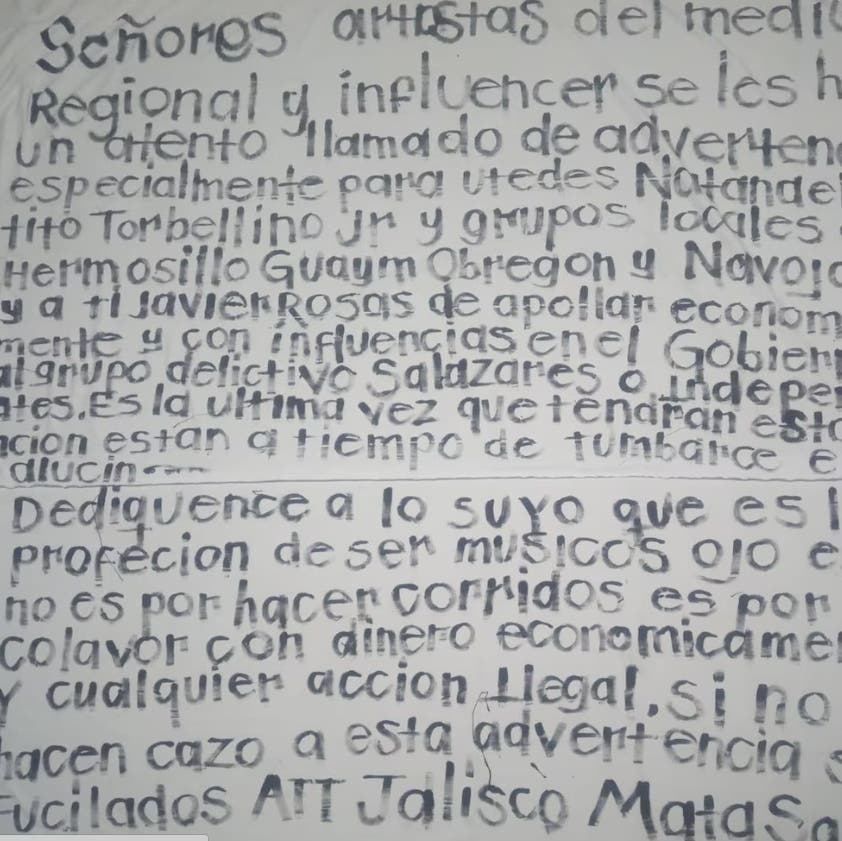 Señores artistas del medi
Regional y influencer se les h
un atento llamado de adverten
especialmente para utedes Natanae
tito Torbellino jr y grupos locales
Hermosillo Guaym Obregon y Navojo
y a ti Javier Rosas de apollar econom
mente y con influencias en el Gobier
al grupo delictivo Salazares o indepe
ates. Es la ultima vez que tendran esta
acion estan a tiempo de tumbarce e
alucin
Dediquence a lo suyo que es l
profecion de ser musicos ojo e
no es por hacer corridos es por
colavor con dinero economicame
y cualquier accion Ilegal, si no
hacen cazo a esta advertencia s
Fucilados ATT Jalisco Mata Sa